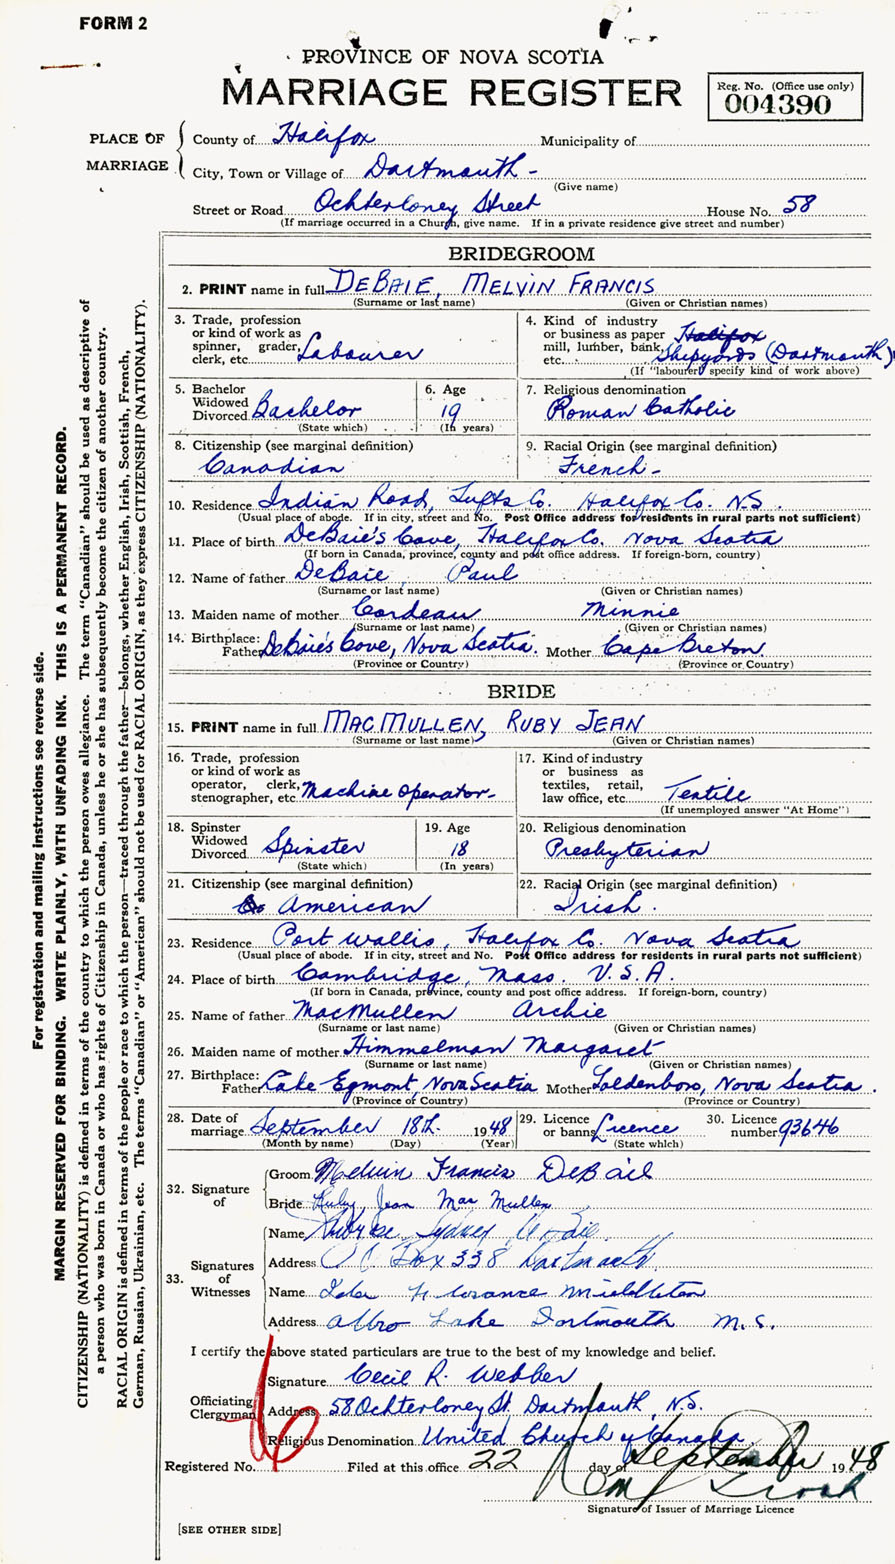 FORM 2
PROVINCE OF NOVA SCOTIA
MARRIAGE REGISTER
Reg. No. (Office use only)
004390
PLACE OF MARRIAGE
County of Halifax Municipality of
City, Town or Village of Dartmouth -
(Give name)
Street or Road Ochterloney Street House No. 58
(If marriage occurred in a Church, give name. If in a private residence give street and number)
BRIDEGROOM
2. PRINT name in full DEBAIE, MELVIN FRANCIS
(Surname or last name) (Given or Christian names)
3. Trade, profession or kind of work as spinner, grader, clerk, etc. Labourer
4. Kind of industry or business as paper mill, lumber, bank, etc. Halifax Shipyards (Dartmouth)
(If "labourer" specify kind of work above)
5. Bachelor Widowed Divorced Bachelor
(State which)
6. Age 19
(In years)
7. Religious denomination
Roman Catholic
8. Citizenship (see marginal definition)
Canadian
9. Racial Origin (see marginal definition)
French -
10. Residence Indian Road, Lufts Co. Halifax Co. N.S.
(Usual place of abode. If in city, street and No. Post Office address for residents in rural parts not sufficient)
11. Place of birth DeBaie's Cove, Halifax Co. Nova Scotia
(If born in Canada, province, county and post office address. If foreign-born, country)
12. Name of father DeBaie, Paul
(Surname or last name) (Given or Christian names)
13. Maiden name of mother Cordeau Minnie
(Surname or last name) (Given or Christian names)
14. Birthplace:
Father DeBaie's Cove, Nova Scotia. Mother Cape Breton
(Province or Country) (Province or Country)
BRIDE
15. PRINT name in full MACMULLEN, RUBY JEAN
(Surname or last name) (Given or Christian names)
16. Trade, profession or kind of work as operator, clerk, stenographer, etc. Machine operator -
17. Kind of industry or business as textiles, retail, law office, etc. Textile
(If unemployed answer "At Home")
18. Spinster Widowed Divorced Spinster
(State which)
19. Age 18
(In years)
20. Religious denomination
Presbyterian
21. Citizenship (see marginal definition)
American
22. Racial Origin (see marginal definition)
Irish.
23. Residence Port Wallis, Halifax Co. Nova Scotia
(Usual place of abode. If in city, street and No. Post Office address for residents in rural parts not sufficient)
24. Place of birth Cambridge, Mass. U.S.A.
(If born in Canada, province, county and post office address. If foreign-born, country)
25. Name of father MacMullen Archie
(Surname or last name) (Given or Christian names)
26. Maiden name of mother Himmelman Margaret
(Surname or last name) (Given or Christian names)
27. Birthplace:
Father Lake Egmont, Nova Scotia Mother Goldenboro, Nova Scotia.
(Province or Country) (Province or Country)
28. Date of marriage September 18th 1948
(Month by name) (Day) (Year)
29. Licence or banns Licence
(State which)
30. Licence number 93646
32. Signature of
Groom Melvin Francis DeBaie
Bride Ruby Jean Mac Mullen
33. Signatures of Witnesses
Name Sydney
Address Box 338 Dartmouth
Name Florance Middleton
Address Albro Lake Dartmouth N.S.
I certify the above stated particulars are true to the best of my knowledge and belief.
Officiating Clergyman
Signature Cecil R. Webber
Address 58 Ochterloney St. Dartmouth, N.S.
Religious Denomination United Church of Canada
Registered No. Filed at this office 22 day of September 1948
Signature of Issuer of Marriage Licence
[SEE OTHER SIDE]
For registration and mailing instructions see reverse side.
MARGIN RESERVED FOR BINDING. WRITE PLAINLY, WITH UNFADING INK. THIS IS A PERMANENT RECORD.
CITIZENSHIP (NATIONALITY) is defined in terms of the country to which the person owes allegiance. The term "Canadian" should be used as descriptive of
a person who was born in Canada or who has rights of Citizenship in Canada, unless he or she has subsequently become the citizen of another country.
RACIAL ORIGIN is defined in terms of the people or race to which the person—traced through the father—belongs, whether English, Irish, Scottish, French,
German, Russian, Ukrainian, etc. The terms "Canadian" or "American" should not be used for RACIAL ORIGIN, as they express CITIZENSHIP (NATIONALITY).